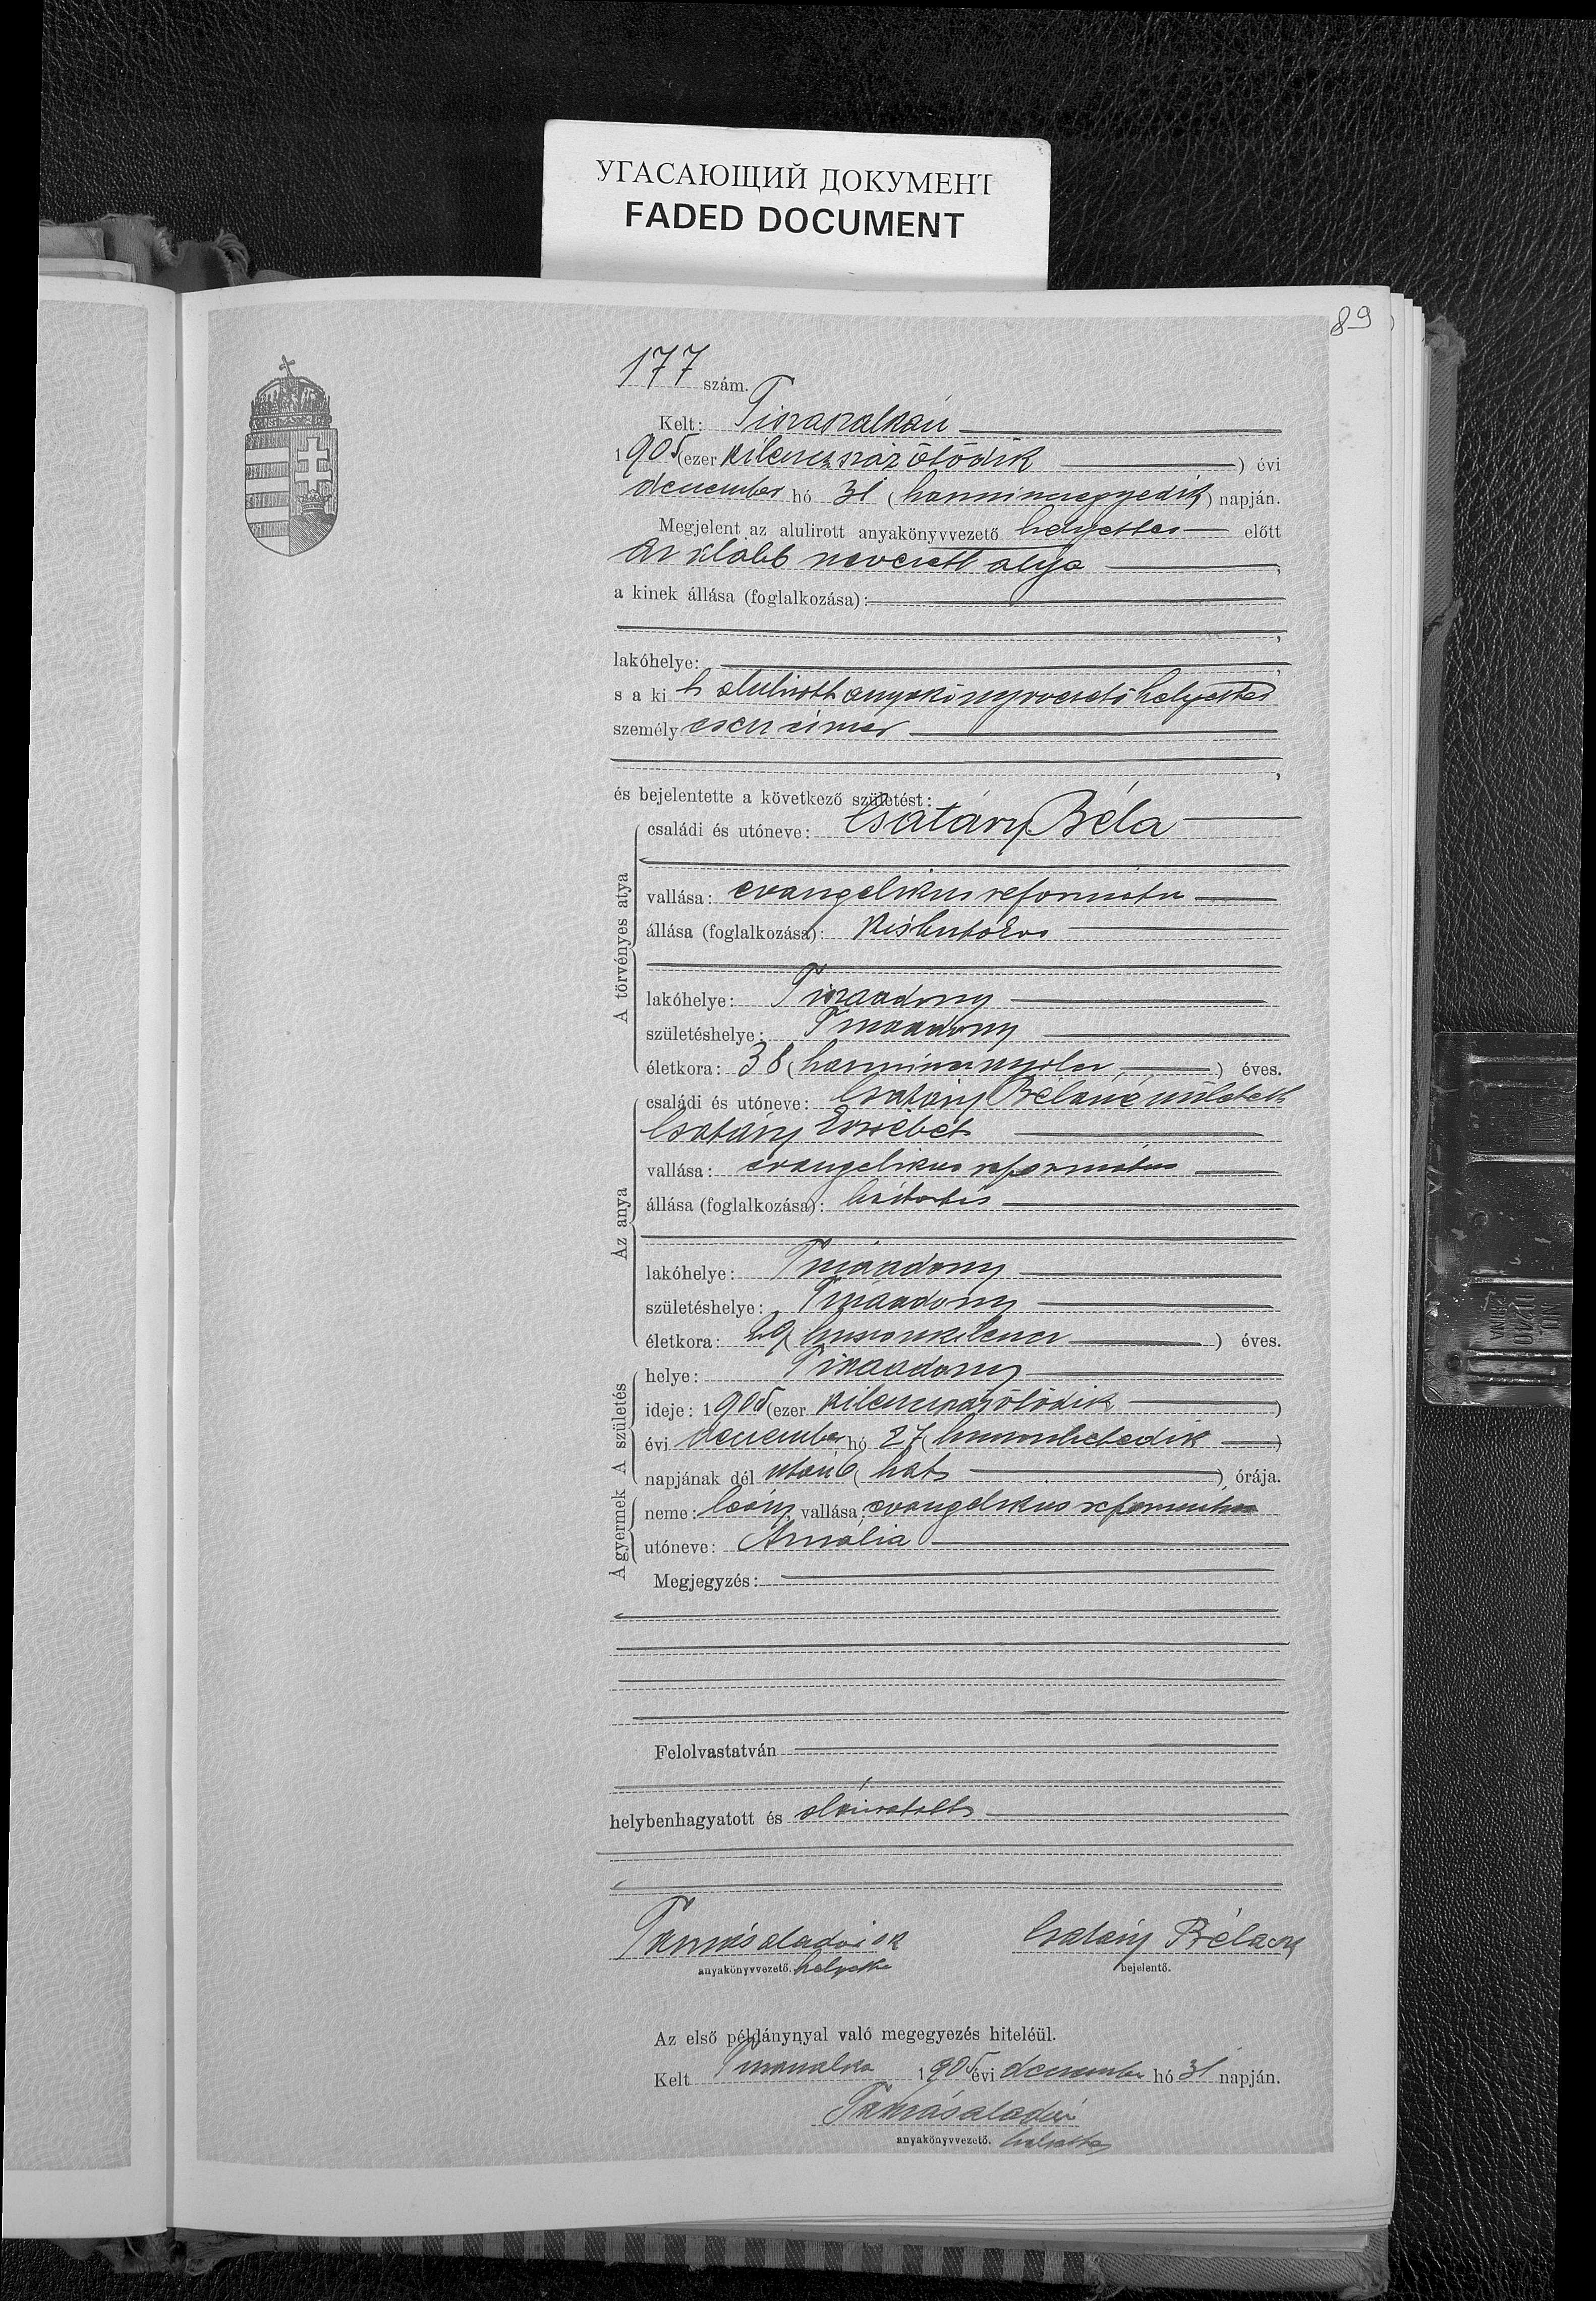 УГАСАЮЩИЙ ДОКУМЕНТ
FADED DOCUMENT
89
177 szám.
Kelt: Tiszaszalkán
1905 (ezer kilenczszáz ötödik) évi
deczember hó 31 (harminczegyedik) napján.
Megjelent az alulirott anyakönyvvezető helyettes előtt
az alább nevezett atya,
a kinek állása (foglalkozása):
,
lakóhelye: ,
s a ki t alulirott anyakönyvvezető helyettes
személyesen ismer
,
és bejelentette a következő születést:
A törvényes atya
családi és utóneve: Csatáry Béla
vallása: evangelikus református
állása (foglalkozása): kisbirtokos
lakóhelye: Tiszaadony
születéshelye: Tiszaadony
életkora: 38 (harmincznyolcz) éves.
Az anya
családi és utóneve: Csatáry Béláné született
Csatáry Erzsébet
vallása: evangelikus református
állása (foglalkozása): háztartás
lakóhelye: Tiszaadony
születéshelye: Tiszaadony
életkora: 29 (huszonkilencz) éves.
A születés
helye: Tiszaadony
ideje: 1905 (ezer kilenczszázötödik)
évi deczember hó 27 (huszonhetedik)
napjának dél után 6 (hat) órája.
A gyermek
neme: leány, vallása: evangelikus református
utóneve: Amália
Megjegyzés:
Felolvastatván
helybenhagyatott és aláiratott
Tamás Aladár sk
anyakönyvvezető. helyettes
Csatáry Béla sk
bejelentő.
Az első példánynyal való megegyezés hiteléül.
Kelt Tiszaszalka 1905 évi deczember hó 31 napján.
Tamás Aladár
anyakönyvvezető. helyettes